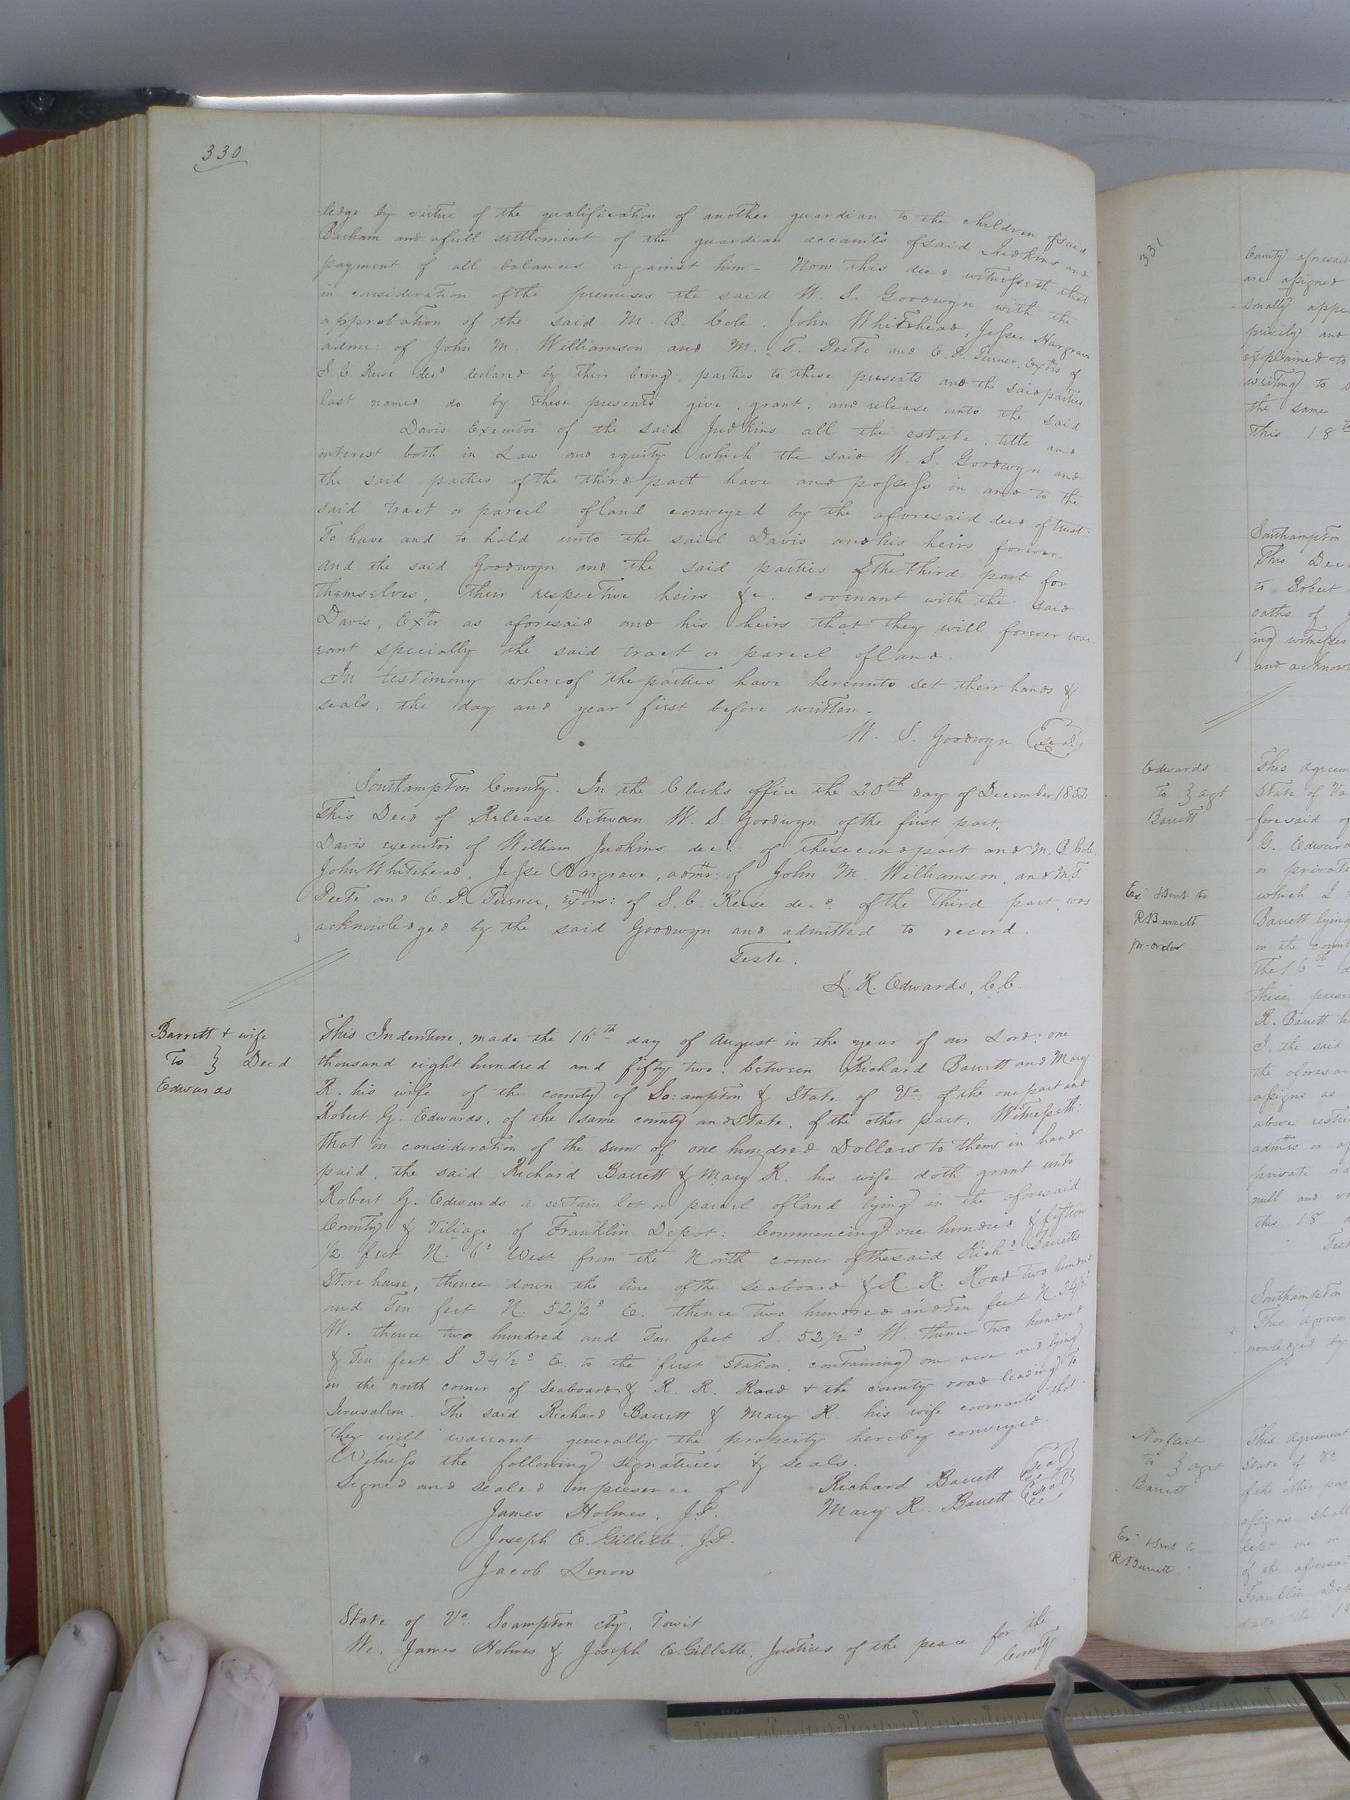 330
ledge by virtue of the qualification of another guardian to the children of said
Barham and a full settlement of the guardian accounts of said Judkins and
payment of all balances against him - Now this deed witnesseth that
in consideration of the premises the said W. S. Goodwyn with the
approbation of the said M. B. Cole, John Whitehead, Jesse Hargrave
admr: of John M. Williamson and M. T. Peete and E. P. Turner, Exors of
S. C. Reese decd declared by their being parties to these presents and the said parties
last named do by these presents give, grant, and release unto the said
Davis Executor of the said Judkins all the estate, title and
interest both in Law and equity which the said W. S. Goodwyn and
the said parties of the third part have and possess in and to the
said tract or parcel of land conveyed by the aforesaid deed of trust.
To have and to hold unto the said Davis and his heirs forever.
And the said Goodwyn and the said parties of the third part for
themselves, their respective heirs &c. covenant with the said
Davis, Exor as aforesaid and his heirs that they will forever war-
rant specially the said tract or parcel of land.
In testimony whereof the parties have hereunto set their hands &
seals, the day and year first before written.
W. S. Goodwyn (seal)
Southampton County. In the Clerks office the 20th day of December 1852
This Deed of Release between W. S Goodwyn of the first part,
Davis executor of William Judkins decd: of the second part and M. B. Cole
John Whitehead, Jesse Hargrave, admr: of John M. Williamson, and M. T.
Peete and E. P. Turner, Exors: of S. C. Reese decd. of the third part, was
acknowledged by the said Goodwyn and admitted to record.
Teste.
L. R. Edwards, C.C.
Barrett & wife
To } Deed
Edwards
This Indenture, made the 16th day of August in the year of our Lord: one
thousand eight hundred and fifty two, between Richard Barrett and Mary
R. his wife of the county of So:ampton & State of Va: of the one part and
Robert G. Edwards, of the same county and State, of the other part, Witnesseth:
that in consideration of the sum of one hundred Dollars to them in hand
paid, the said Richard Barrett & Mary R. his wife doth grant unto
Robert G. Edwards a certain lot or parcel of land lying in the aforesaid
County & Village of Franklin Depot: Commencing one hundred & fifteen
1/2 feet N. 6° West from the North corner of the said Richd Barretts
Store house, thence down the line of the seaboard & R. R. Road two hundred
and Ten feet N. 52 1/2° E. thence two hundred and Ten feet N 34 1/2°
W. thence two hundred and Ten feet S. 52 1/2° W. thence Two hundred
& Ten feet S 34 1/2° E. to the first station, containing one acre and lying
in the north corner of Seaboard & R. R. Road & the county road leading to
Jerusalem. The said Richard Barrett & Mary R. his wife covenants that
they will warrant generally the property hereby conveyed.
Witness the following signatures & seals.
Signed and sealed in presence of Richard Barrett (seal)
James Holmes, J.P. Mary R. Barrett (seal)
Joseph E. Gillette, J.P.
Jacob Lenow
State of Va. Soampton cty, Towit
We, James Holmes & Joseph E Gillette, Justices of the peace for the
County
331
County aforesaid
are assigned
sonally appe
privily and
explained to
writing to
the same
this 18th
Southampton
This Deed
to Robert
oaths of
ing witnesses
and acknow
Edwards
To } agt
Barrett
Ex & Sent to
R Barrett
pr. order
This agreem
State of Va
foresaid of
G. Edward
or private
which I
Barrett lying
in the count
the 16th
these pres
R. Barrett
I. the said
the aforesa
assigns as
above
admrs or
private
null and vo
this 18
Test
Southampton
This agreem
nowledged by
Norfleet
to } agt
Barrett
Ex & Sent to
R Barrett
This agreement
State of Va
of the other par
assigns shall
kept one
of the aforesai
Franklin Dep